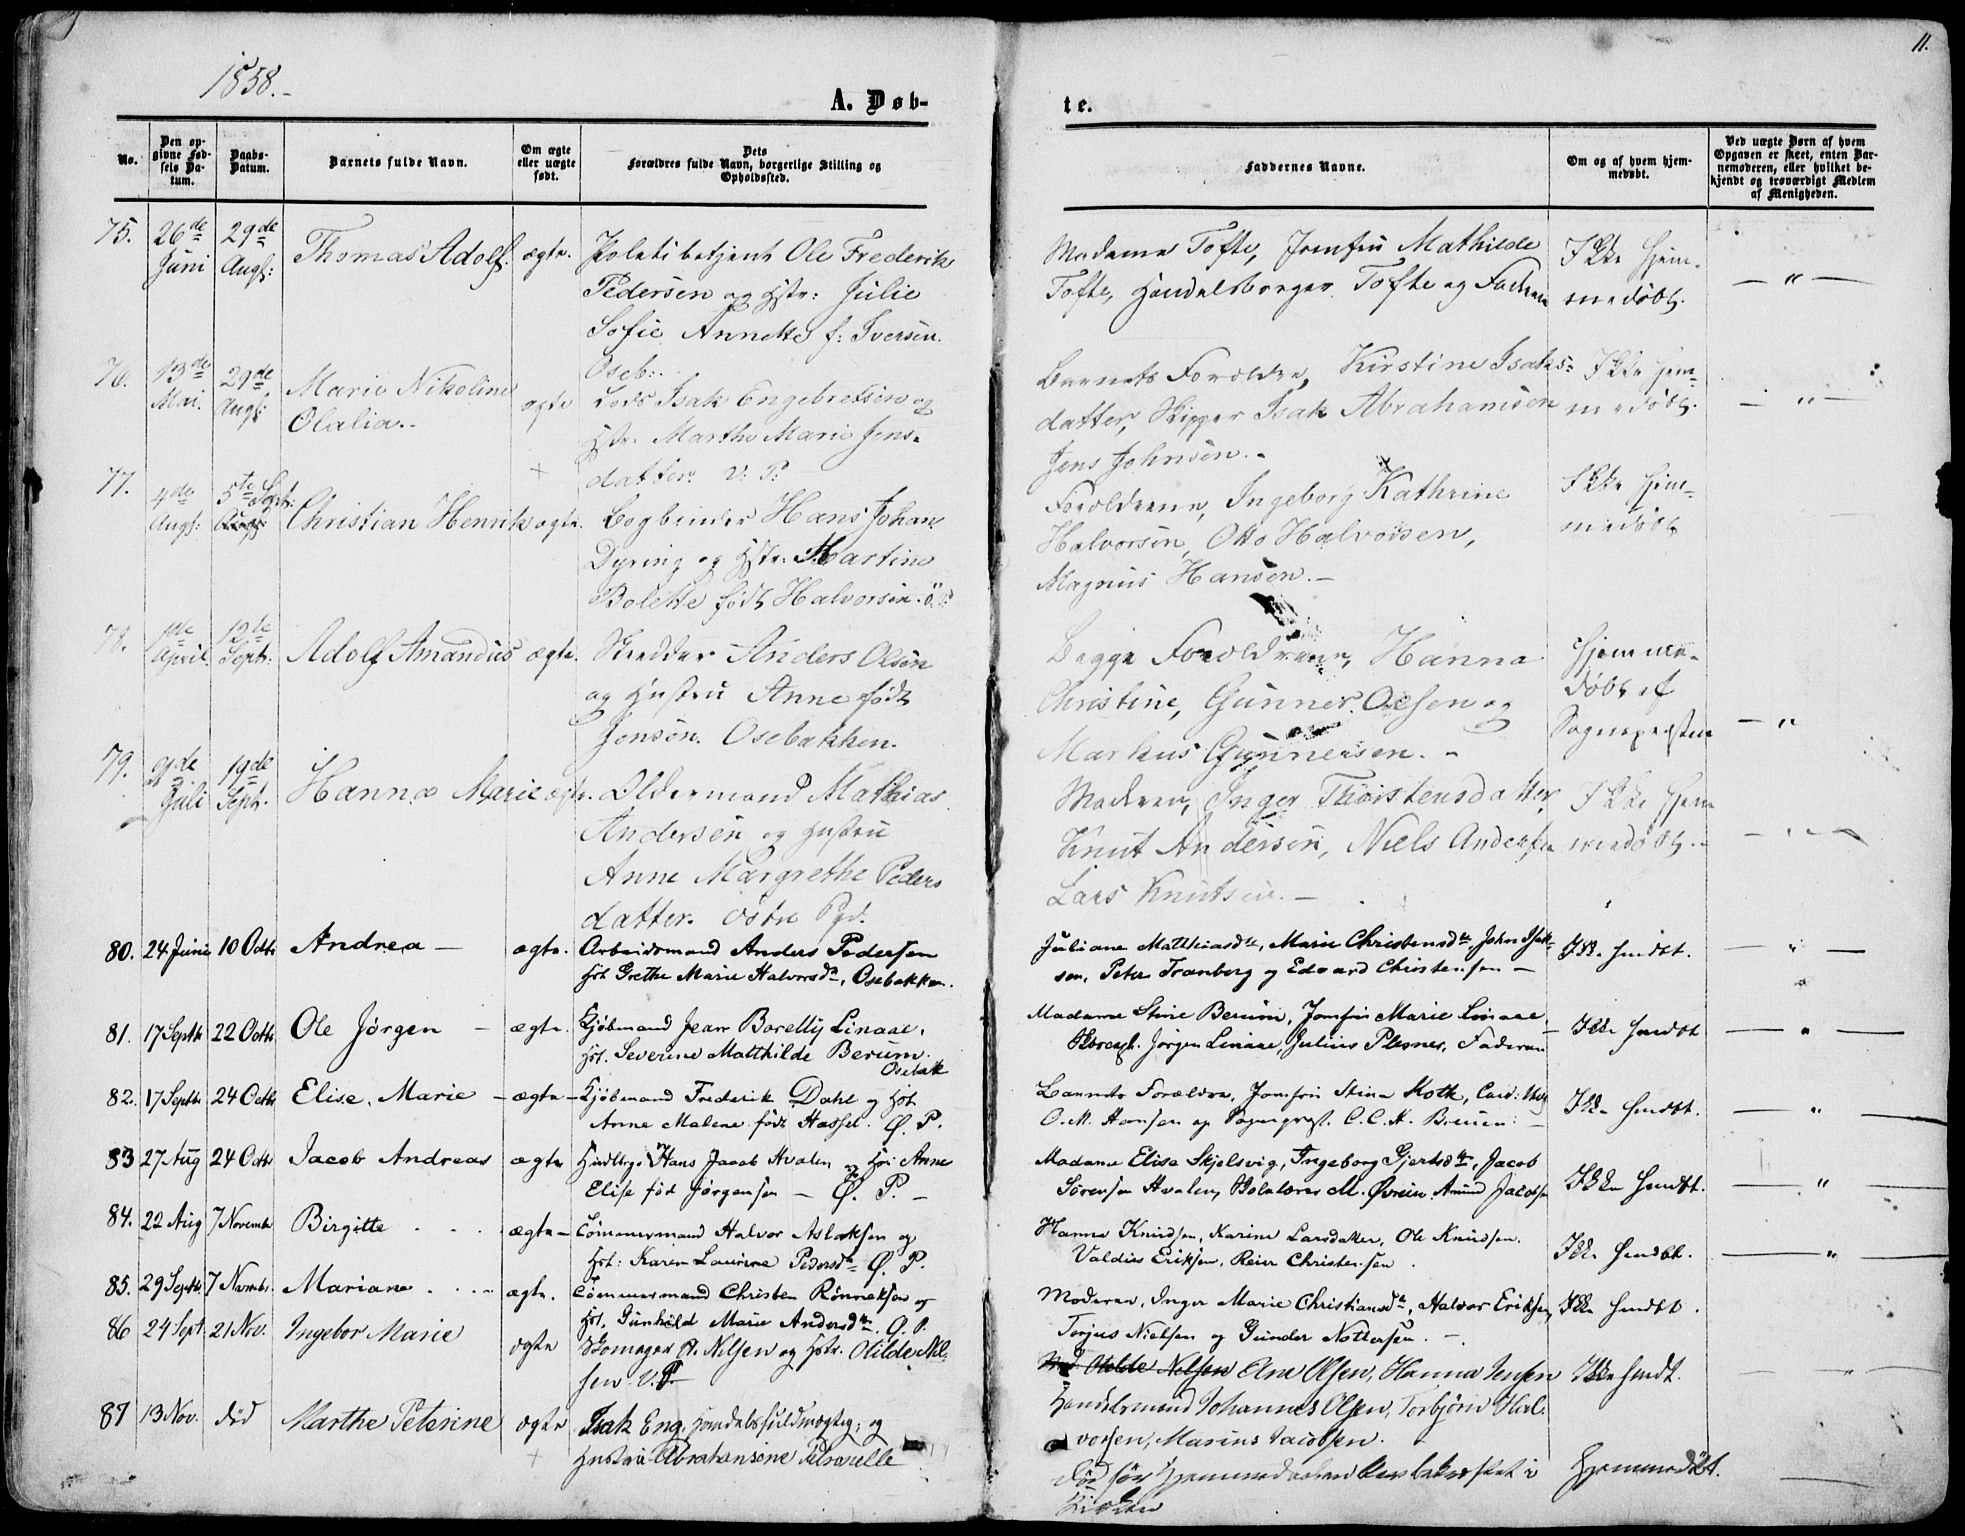 1858.-
11.
A. Døb-
te.
No.
Den op-
givne Fød-
sels Da-
tum.
Daabs-
Datum.
Barnets fulde Navn.
Om ægte
eller uægte
født.
Dets
Forældres fulde Navn, borgerlige Stilling og
Opholdssted.
Faddernes Navne.
Om og af hvem hjem-
medøbt.
Ved uægte Børn af hvem
Opgaven er skeet, enten Bar-
nemoderen, eller hvilket be-
kjendt og troværdigt Medlem
af Menigheden.
75. 26de Juni 29de Augs: Thomas Adolf. ægte. Politibetjent Ole Frederik
Pedersen og Hstr: Julie
Sofie Annette f: Iversen.
Oseb:.
Madame Tofte, Jomfru Mathilde
Tofte, Handelsborger Tofte og Faderen
Ikke hjem-
medøbt.
76. 13de Mai. 29de Augs: Marie Nikoline
Olalia.. ægte Lods Isak Engebretsen og
Hstr. Marthe Marie Jens-
datter. V: P.
Barnets Forældre, Kirstine Isaks-
datter, Skipper Isak Abrahamsen
Jens Johnsen.-
Ikke hjem-
medøbt.
77. 4de Augs: 5te Sept: Christian Henrik ægte. Bogbinder Hans Johan
Dyring og Hstr: Martine
Bolette født Halvorsen. Ö.P.
Forældrene, Ingeborg Kathrine
Halvorsen, Otto Halvorsen,
Magnus Hansen.-
Ikke hjem-
medøbt
78. 1ste April. 12te Sept: Adolf Amandus ægte. Skrædder Anders Olsen
og Hustru Anne født
Jensen. Osebakken.
Begge Forældrene, Hanna
Christine, Gunner Olsen og
Markus Gunnersen.-
Hjemme-
døbt af
Sognepresten
79. 9de Juli 19de Sept. Hanna Marie ægte. Oldermand Mathias
Andersen og Hustru
Anne Margrethe Peders
datter. Østre Pgd.
Moderen, Inger Thorstensdatter,
Knut Andersen, Niels Andersen
Lars Knutsen.-
Ikke hjem
medøbt.-
80. 24 Juni 10 Octbr Andrea - ægte. Arbeidsmand Anders Pedersen
Hst Grethe Marie Halvorsdtr, Osebakken.
Juliane Matthiasdtr, Marie Christensdtr, John Isak-
sen, Peter Tranberg og Edvard Christensen -
Ikke hmdbt.
81. 17 Septbr 22 Octbr Ole Jørgen - ægte. Kjøbmand Jean Borelly Linaae,
Hst. Severine Matthilde Berum.
Osebak
Madame Stine Berum, Jomfru Marie Linaae,
Jørgen Linaae, Julius Plesner, Faderen
Ikke hmdbt
82. 17 Septbr 24 Octbr Elise Marie - ægte - Kjøbmand Frederik Dahl og Hst
Anne Malene født Hassel. Ø. P.
Barnets Forældre, Jomfru Stina Moth, Cand:
O. M. Hansen og Sogneprest. C. C. H. Bruun. -
Ikke hmdbt.
83 27 Aug 24 Octbr Jacob Andreas ægte Hans Jacob Hvalen og Hst Anne
Elise fød Jørgensen - Ø. P. -
Madame Elise Skjelsvig, Ingeborg Gjertsdtr, Jacob
Sørensen Hvalen, M. Øvrum Amund Jacobsen
Ikke hmdbt.
84. 22 Aug 7 Novembr Birgitte ægte - Tømmermand Halvor Aslaksen og
Hst: Karen Laurine Pedersdtr Ø. P.
Hanna Knudsen, Karine Larsdatter, Ole Knudsen.
Valdius Eriksen, Reier Christensen.
Ikke hmdbt.
85. 29 Septbr 7 Novembr. Mariane ægte. Tømmermand Christen Rønneksen og
Hst. Gunhild Marie Andersdtr. Ø. P.
Moderen, Inger Marie Christiansdtr, Halvor Eriksen,
Torjus Nielsen og Gunder Nottersen. -
Ikke hmdbt.
86 24 Sept 21 Nov. Ingebor Marie ægte Skomager P. Nilsen og Hstr. Otilde Nil-
sen V. P.
Otilde Nelsen Ane Olsen, Hanna Jensen
Handelsmand Johannes Olsen, Torbjørn Hal-
vorsen, Marius Jacobsen.
Ikke hmdt.
87 13 Nov. død Marthe Peterine ægte Isak Eng, Handelsfuldmægtig, og
Hustru Abrahamsine Petronelle
død før Hjemmedaaben
Kirken
Hjemmedöbt.